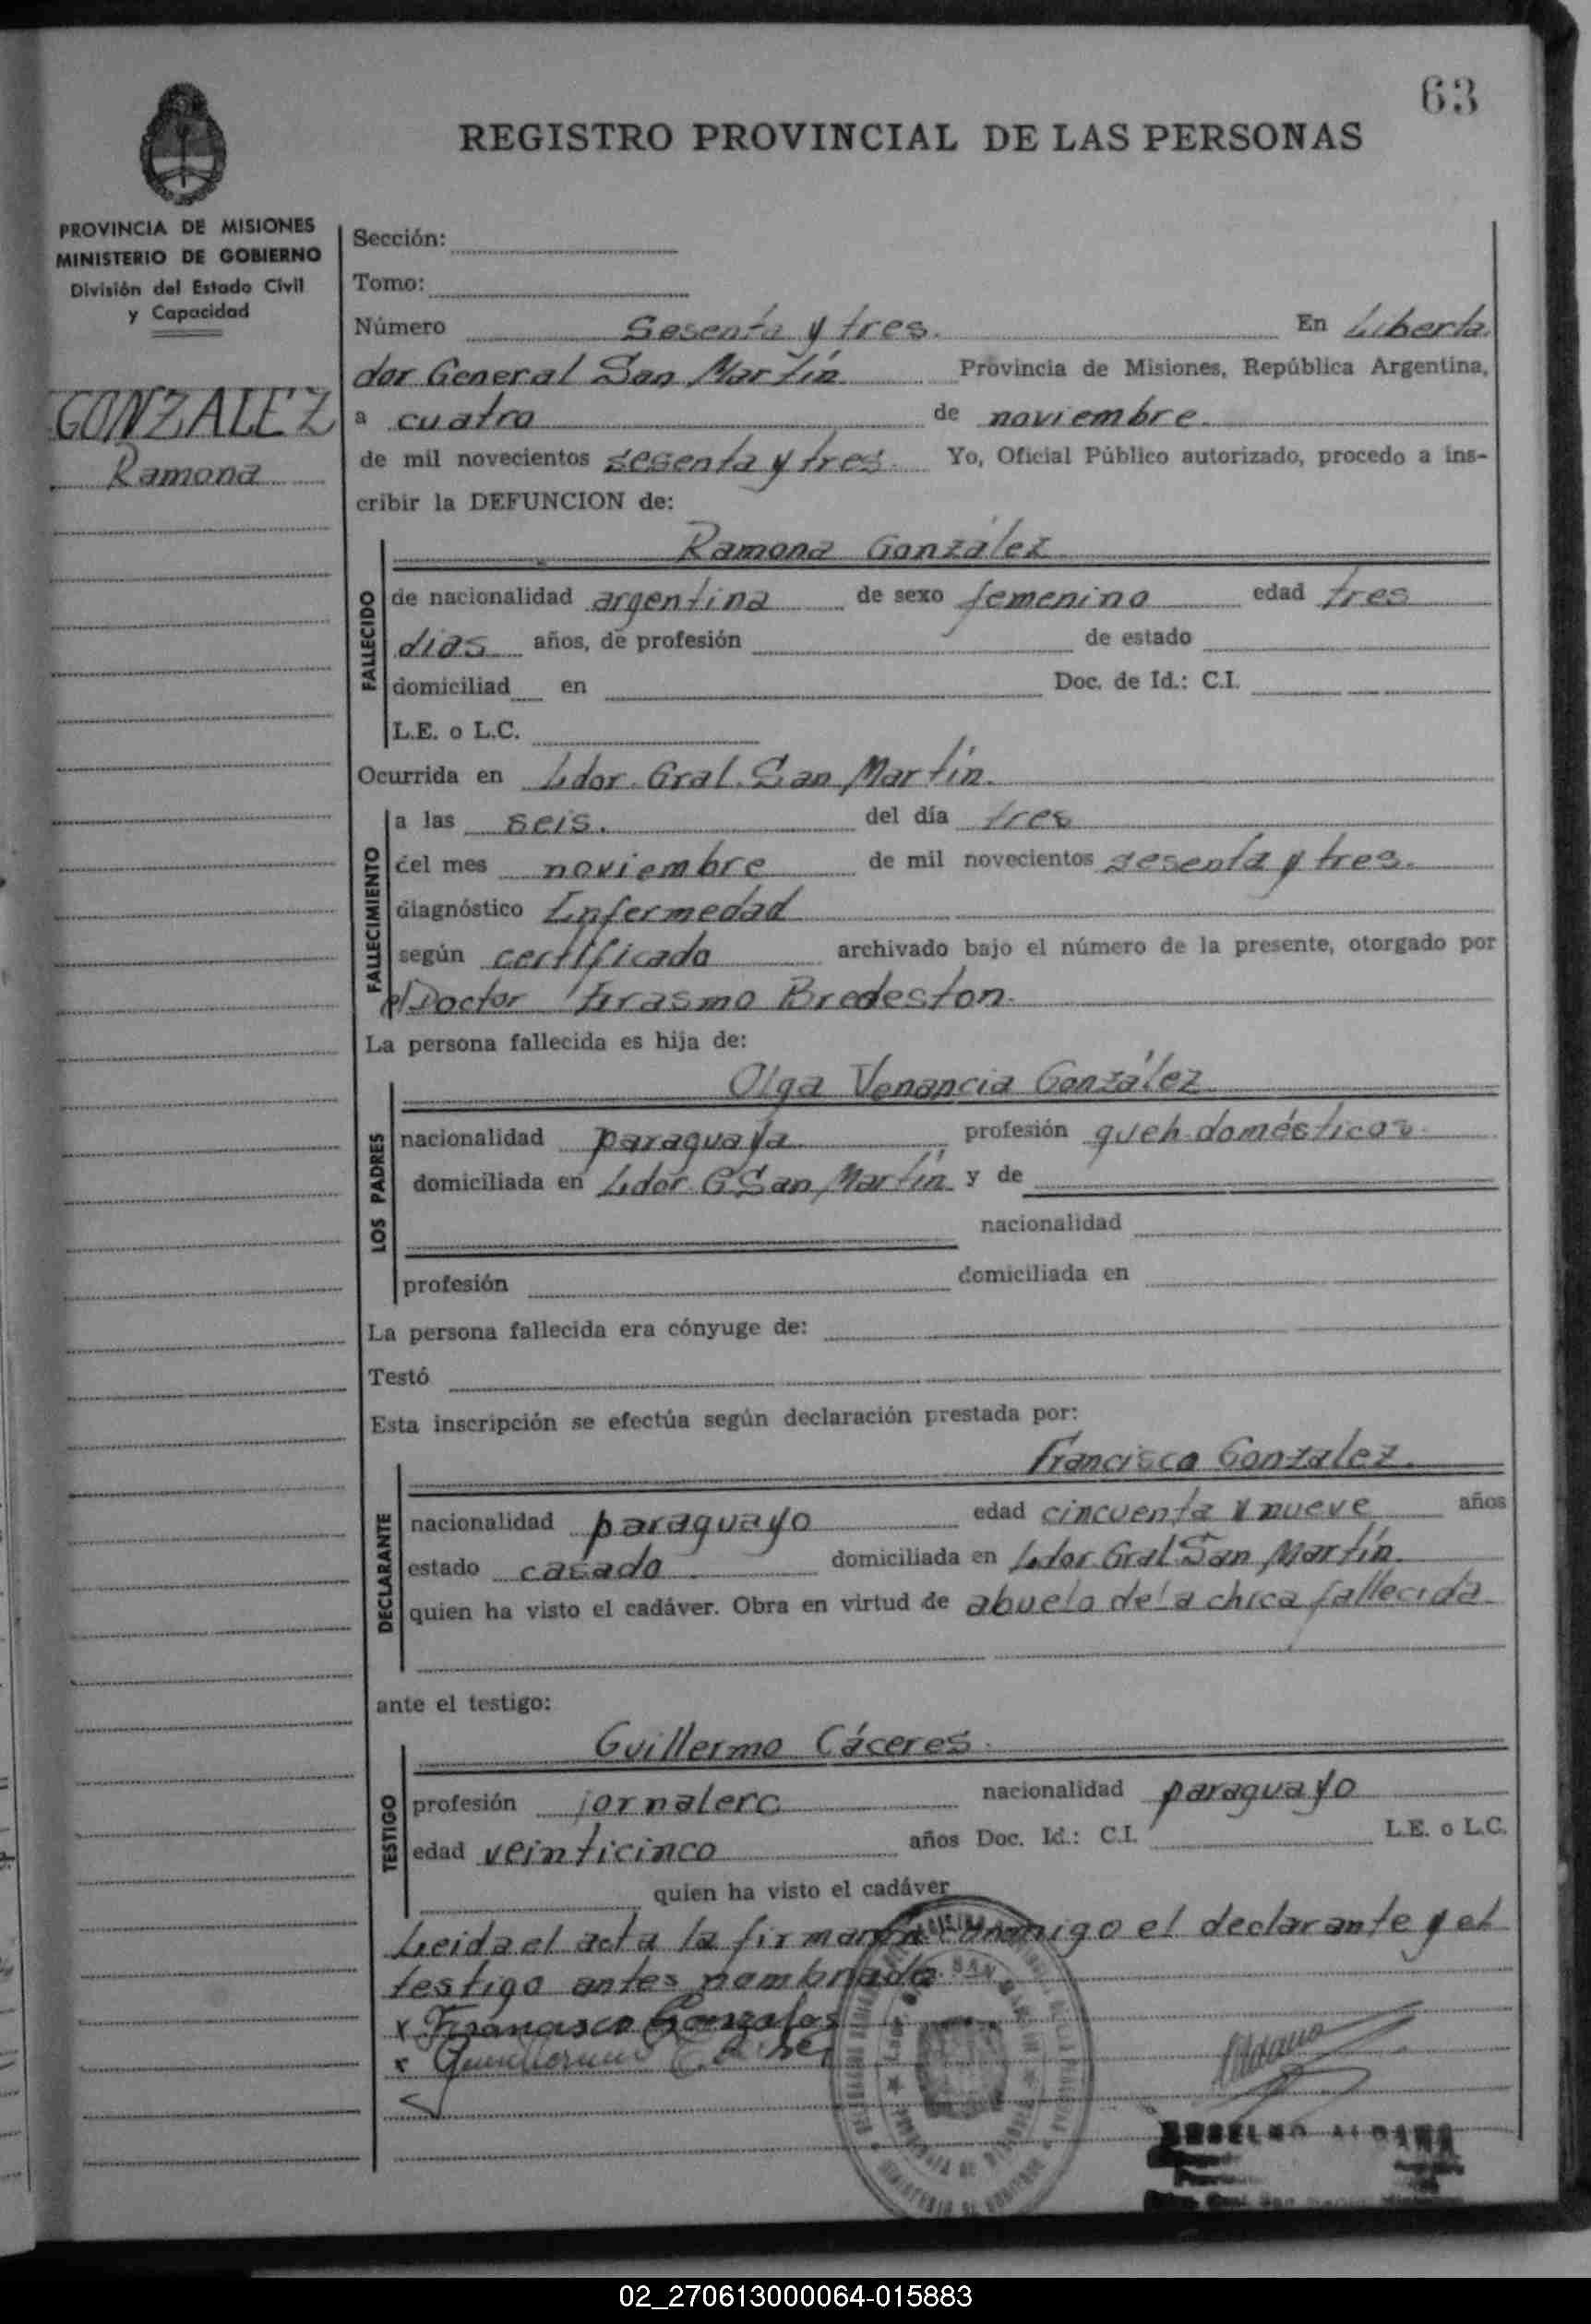 63
REGISTRO PROVINCIAL DE LAS PERSONAS
PROVINCIA DE MISIONES
MINISTERIO DE GOBIERNO
División del Estado Civil
y Capacidad
GONZALEZ
Ramona
Sección:
Tomo:
Número Sesenta y tres. En Liberta
dor General San Martín Provincia de Misiones, República Argentina,
a cuatro de noviembre.
de mil novecientos sesenta y tres. Yo, Oficial Público autorizado, procedo a ins-
cribir la DEFUNCION de:
Ramona González
FALLECIDO
de nacionalidad argentina de sexo femenino edad tres
días años, de profesión de estado
domiciliad en Doc. de Id.: C.I.
L.E. o L.C.
Ocurrida en Ldor. Gral. San Martín.
FALLECIMIENTO
a las seis. del día tres
del mes noviembre de mil novecientos sesenta y tres.
diagnóstico Enfermedad
según certificado archivado bajo el número de la presente, otorgado por
el Doctor Erasmo Bredeston.
La persona fallecida es hija de:
Olga Venancia González
LOS PADRES
nacionalidad paraguaya profesión queh. domésticos
domiciliada en Ldor G San Martín y de
nacionalidad
profesión domiciliada en
La persona fallecida era cónyuge de:
Testó
Esta inscripción se efectúa según declaración prestada por:
Francisco Gonzalez.
DECLARANTE
nacionalidad paraguayo edad cincuenta y nueve años
estado casado domiciliada en Ldor Gral San Martín.
quien ha visto el cadáver. Obra en virtud de abuelo de la chica fallecida
ante el testigo:
Guillermo Cáceres.
TESTIGO
profesión jornalero nacionalidad paraguayo
edad veinticinco años Doc. Id.: C.I. L.E. o L.C.
quien ha visto el cadáver
Leida el acta la firman conmigo el declarante y el
testigo antes nombrado
x Francisco Gonzales
x
02_270613000064-015883